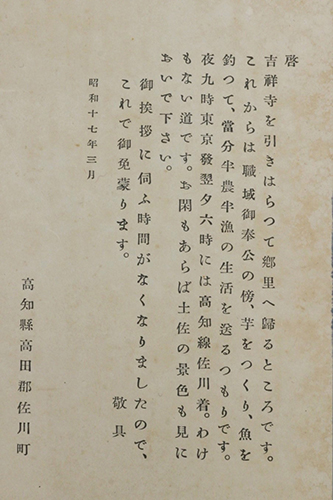 啓
吉祥寺を引きはらつて鄕里へ歸るところです。
これからは職域御奉公の傍、芋をつくり、魚を
釣つて、當分半農半漁の生活を送るつもりです。
夜九時東京發翌夕六時には高知線佐川着。わけ
もない道です。お閑もあらば土佐の景色も見に
おいで下さい。
御挨拶に伺ふ時間がなくなりましたので、
これで御免蒙ります。
敬具
昭和十七年三月
高知縣高田郡佐川町